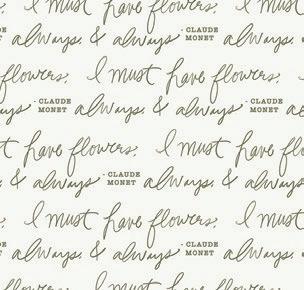 I must have flowers, I must
always, & always - CLAUDE MONET always,
flowers, I must have flowers,
- CLAUDE MONET always, & always - CLAUDE MONET
must have flowers, I must have
& always - CLAUDE MONET always, & always
I must have flowers, I must
always, & always - CLAUDE MONET always,